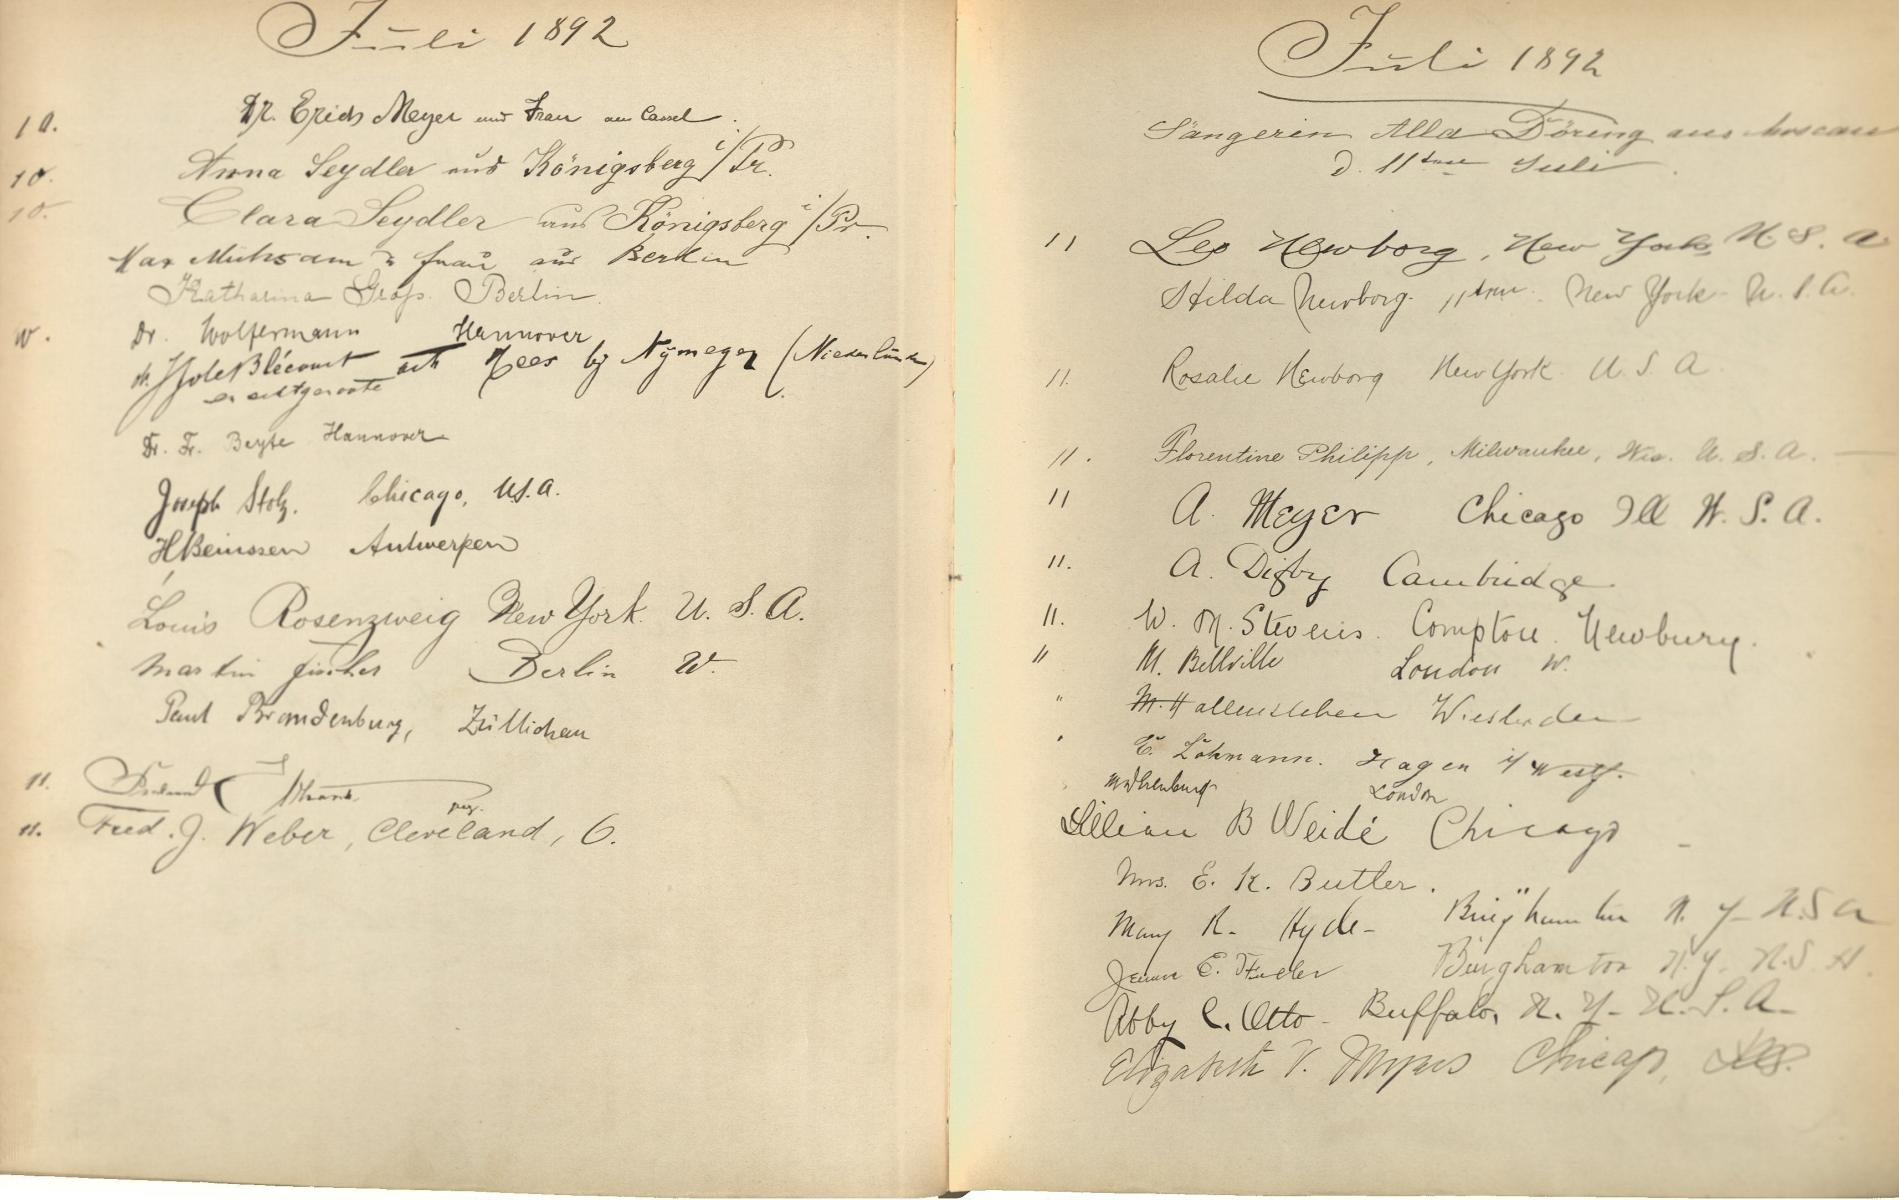 Juli 1892
10. Dr. Erich Meyer und Frau aus Cassel.
10. Anna Seydler aus Königsberg i/Pr.
10. Clara Seydler aus Königsberg i/Pr.
Max Mühsam u Frau aus Berlin
Katharina Groß. Berlin.
10. Dr. Wolfermann Hannover
Blécourt uit Hees bij Nÿmegen (Niederlande)
en echtgenoote
Dr. Fr. Beyte Hannover
Joseph Stolz. Chicago, U.S.A.
Antwerpen
Louis Rosenzweig New York. U. S. A.
Martin Fischer Berlin W.
Paul Brandenburg, Züllichau
11.
11. Fred. J. Weber, Cleveland, O.
Juli 1892
Sängerin Alla Döring aus Moscau
d. 11ten Juli
11 Leo Newborg, New York U. S. A
Hilda Newborg. 11ten. New York - U. S. A.
11. Rosalie Newborg New York. U. S. A.
11. Florentine Philipp, Milwaukee, Wis. U. S. A.
11 A. Meyer Chicago Ill U. S. A.
11. A. Digby Cambridge
11. W. M. Stevens. Compton. Newbury.
" M. Bellville London W.
" Wiesbaden
" E. Lohmann. Hagen i/Westf.
London
Lillian B Weidé Chicago
Mrs. E. K. Butler.
Mary R. Hyde - Binghamton N. Y - U.S A
E. Binghamton N.Y. U.S A.
Abby C. Otto - Buffalo, N. Y - U. S. A.
Elizabeth V. Myers Chicago,